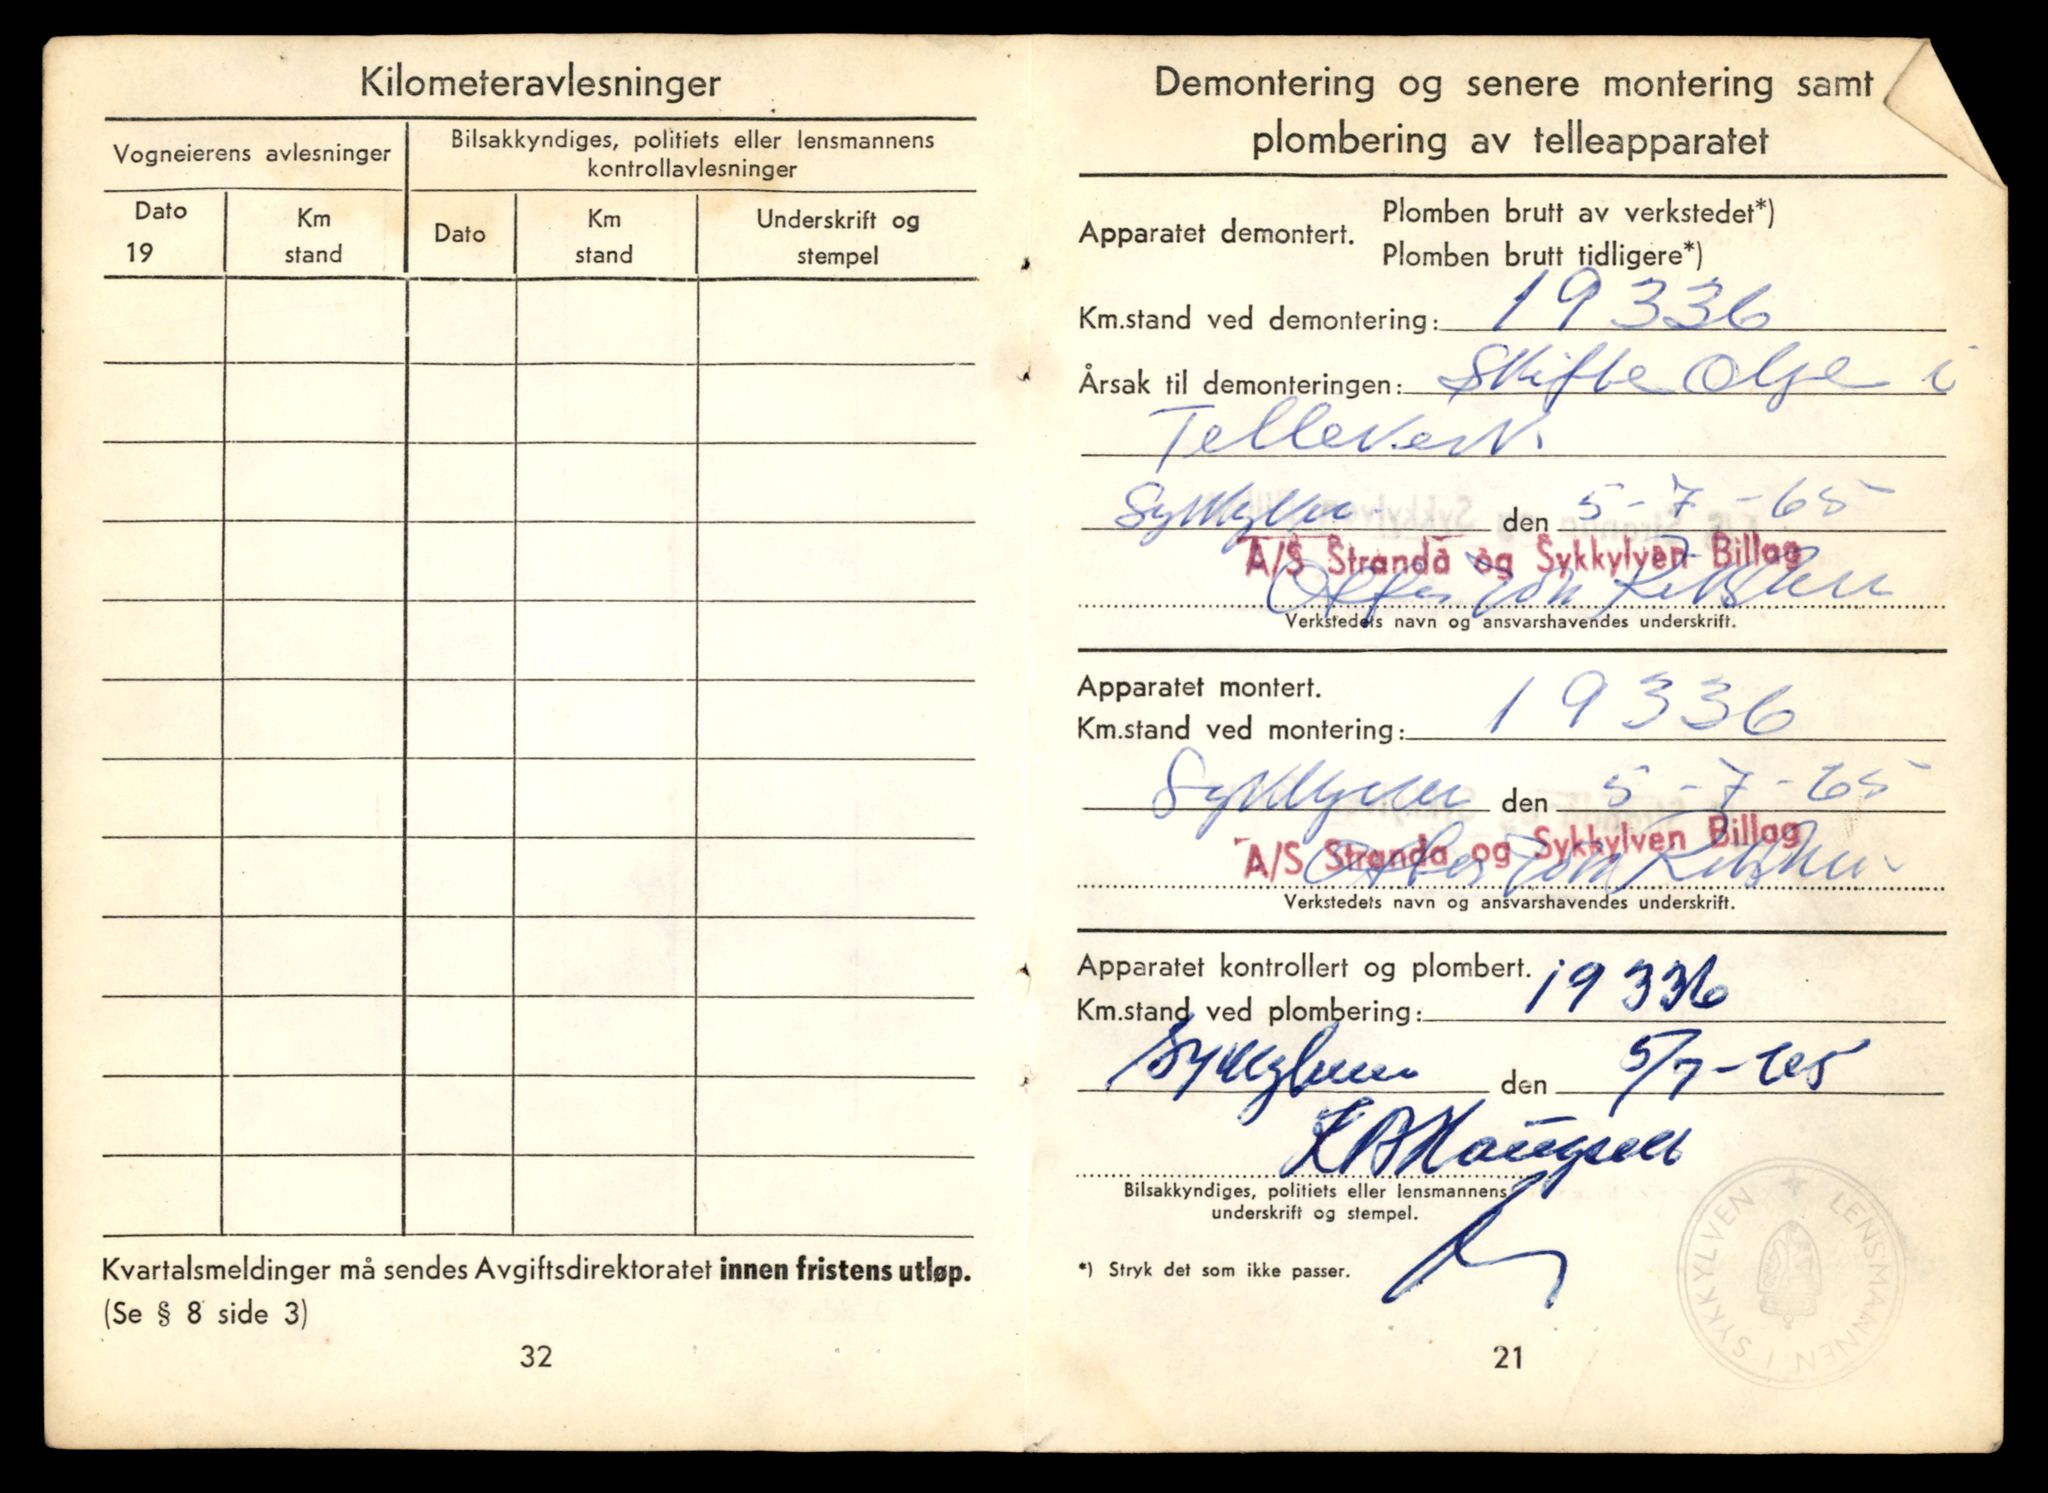 Kilometeravlesninger
Vogneierens avlesninger
Bilsakkyndiges, politiets eller lensmannens
kontrollavlesninger
Dato
19
Km
stand
Dato
Km
stand
Underskrift og
stempel
Kvartalsmeldinger må sendes Avgiftsdirektoratet innen fristens utløp.
(Se § 8 side 3)
32
Demontering og senere montering samt
plombering av telleapparatet
Apparatet demontert.
Plomben brutt av verkstedet*)
Plomben brutt tidligere*)
Km.stand ved demontering: 19336
Årsak til demonteringen: Skifte Olje i
Telleverk.
Sykkylven den 5-7-65
A/S Stranda og Sykkylven Billag
Verkstedets navn og ansvarshavendes underskrift.
Apparatet montert.
Km.stand ved montering: 19336
Sykkylven den 5-7-65
A/S Stranda og Sykkylven Billag
Verkstedets navn og ansvarshavendes underskrift.
Apparatet kontrollert og plombert.
Km.stand ved plombering: 19336
Sykkylven den 5/7-65
Bilsakkyndiges, politiets eller lensmannens
underskrift og stempel.
*) Stryk det som ikke passer.
LENSMANNEN I SYKKYLVEN
21